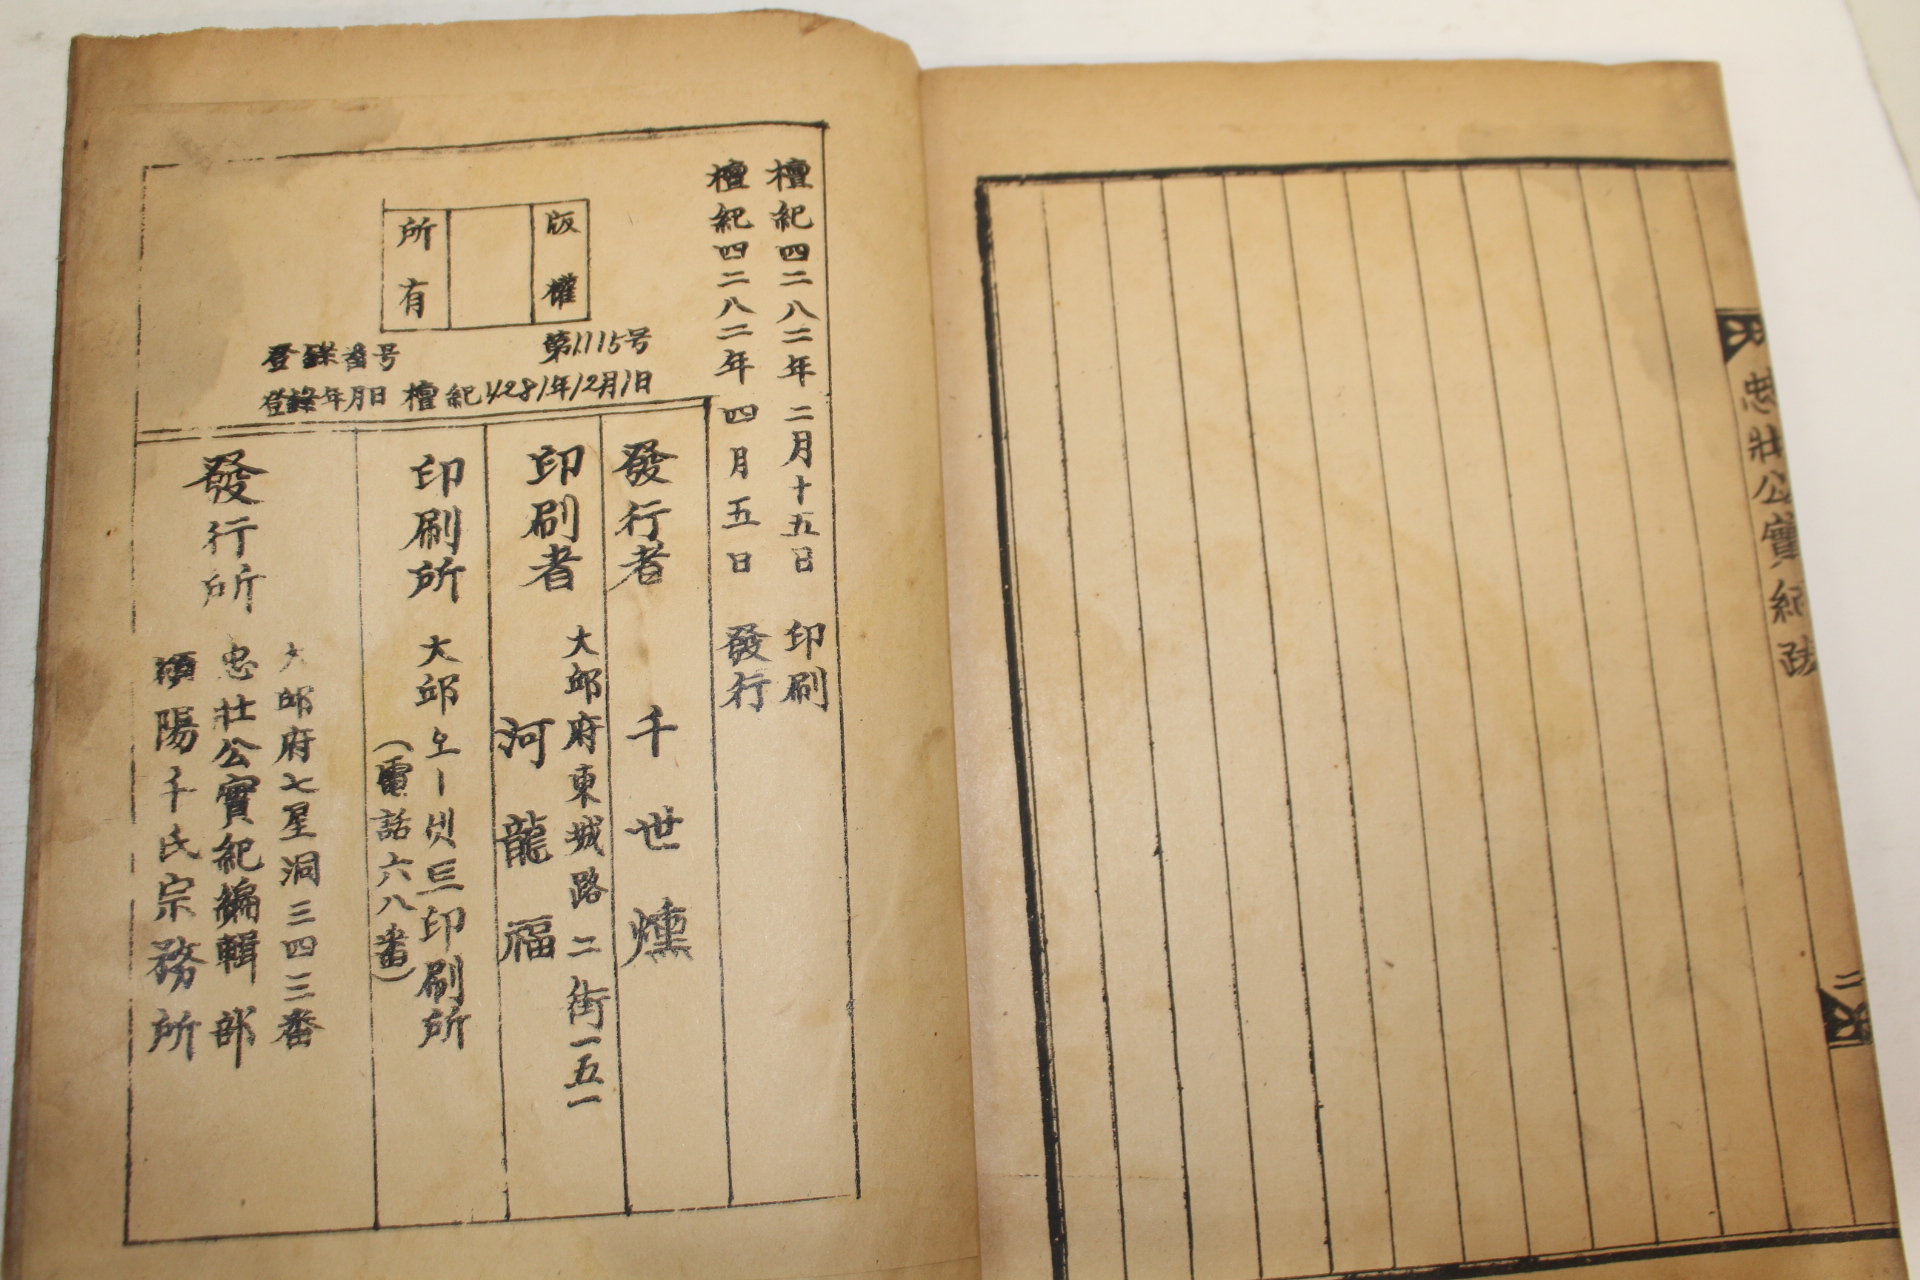 忠壯公實紀跋
二
檀紀四二八二年二月十五日 印刷
檀紀四二八二年四月五日 發行
版權
所有
登錄番号 第1115号
登錄年月日 檀紀4281年12月1日
發行者 千世燻
印刷者 大邱府東城路二街一五一
河龍福
印刷所 大邱오ー넷트印刷所
(電話六八番)
發行所 大邱府七星洞三四三番
忠壯公實紀編輯部
潁陽千氏宗務所